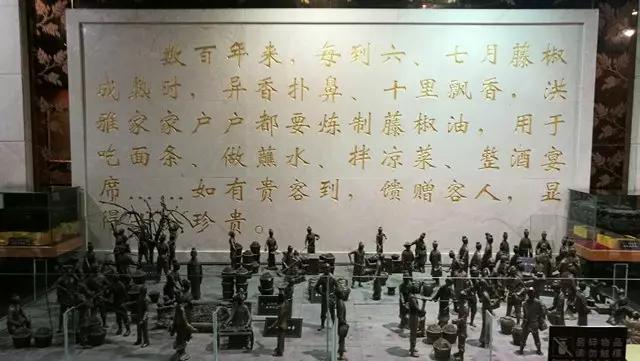 数百年来，每到六、七月藤椒
成熟时，异香扑鼻、十里飘香，洪
雅家家户户都要炼制藤椒油，用于
吃面条、做蘸水、拌凉菜、整酒宴
席……如有贵客到，馈赠客人，显
得 珍贵。